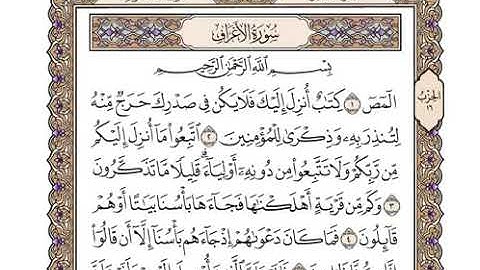 سُورَةُ الْأَعْرَافِ
بِسْمِ اللَّهِ الرَّحْمَٰنِ الرَّحِيمِ
الٓمٓصٓ ١ كِتَٰبٌ أُنزِلَ إِلَيْكَ فَلَا يَكُن فِى صَدْرِكَ حَرَجٌ مِّنْهُ
لِتُنذِرَ بِهِۦ وَذِكْرَىٰ لِلْمُؤْمِنِينَ ٢ ٱتَّبِعُوا۟ مَآ أُنزِلَ إِلَيْكُم
مِّن رَّبِّكُمْ وَلَا تَتَّبِعُوا۟ مِن دُونِهِۦٓ أَوْلِيَآءَ قَلِيلًا مَّا تَذَكَّرُونَ
٣ وَكَم مِّن قَرْيَةٍ أَهْلَكْنَٰهَا فَجَآءَهَا بَأْسُنَا بَيَٰتًا أَوْ هُمْ
قَآئِلُونَ ٤ فَمَا كَانَ دَعْوَىٰهُمْ إِذْ جَآءَهُم بَأْسُنَآ إِلَّآ أَن قَالُوٓا۟
الحِزْب
١٦